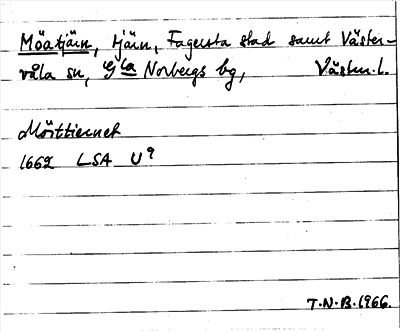 Möatjärn, tjärn, Fagersta stad samt Väster-
våla sn, Gla Norbergs bg, Västm.l.
Mörttiernet
1662 LSA U9
T.N.B.1966.